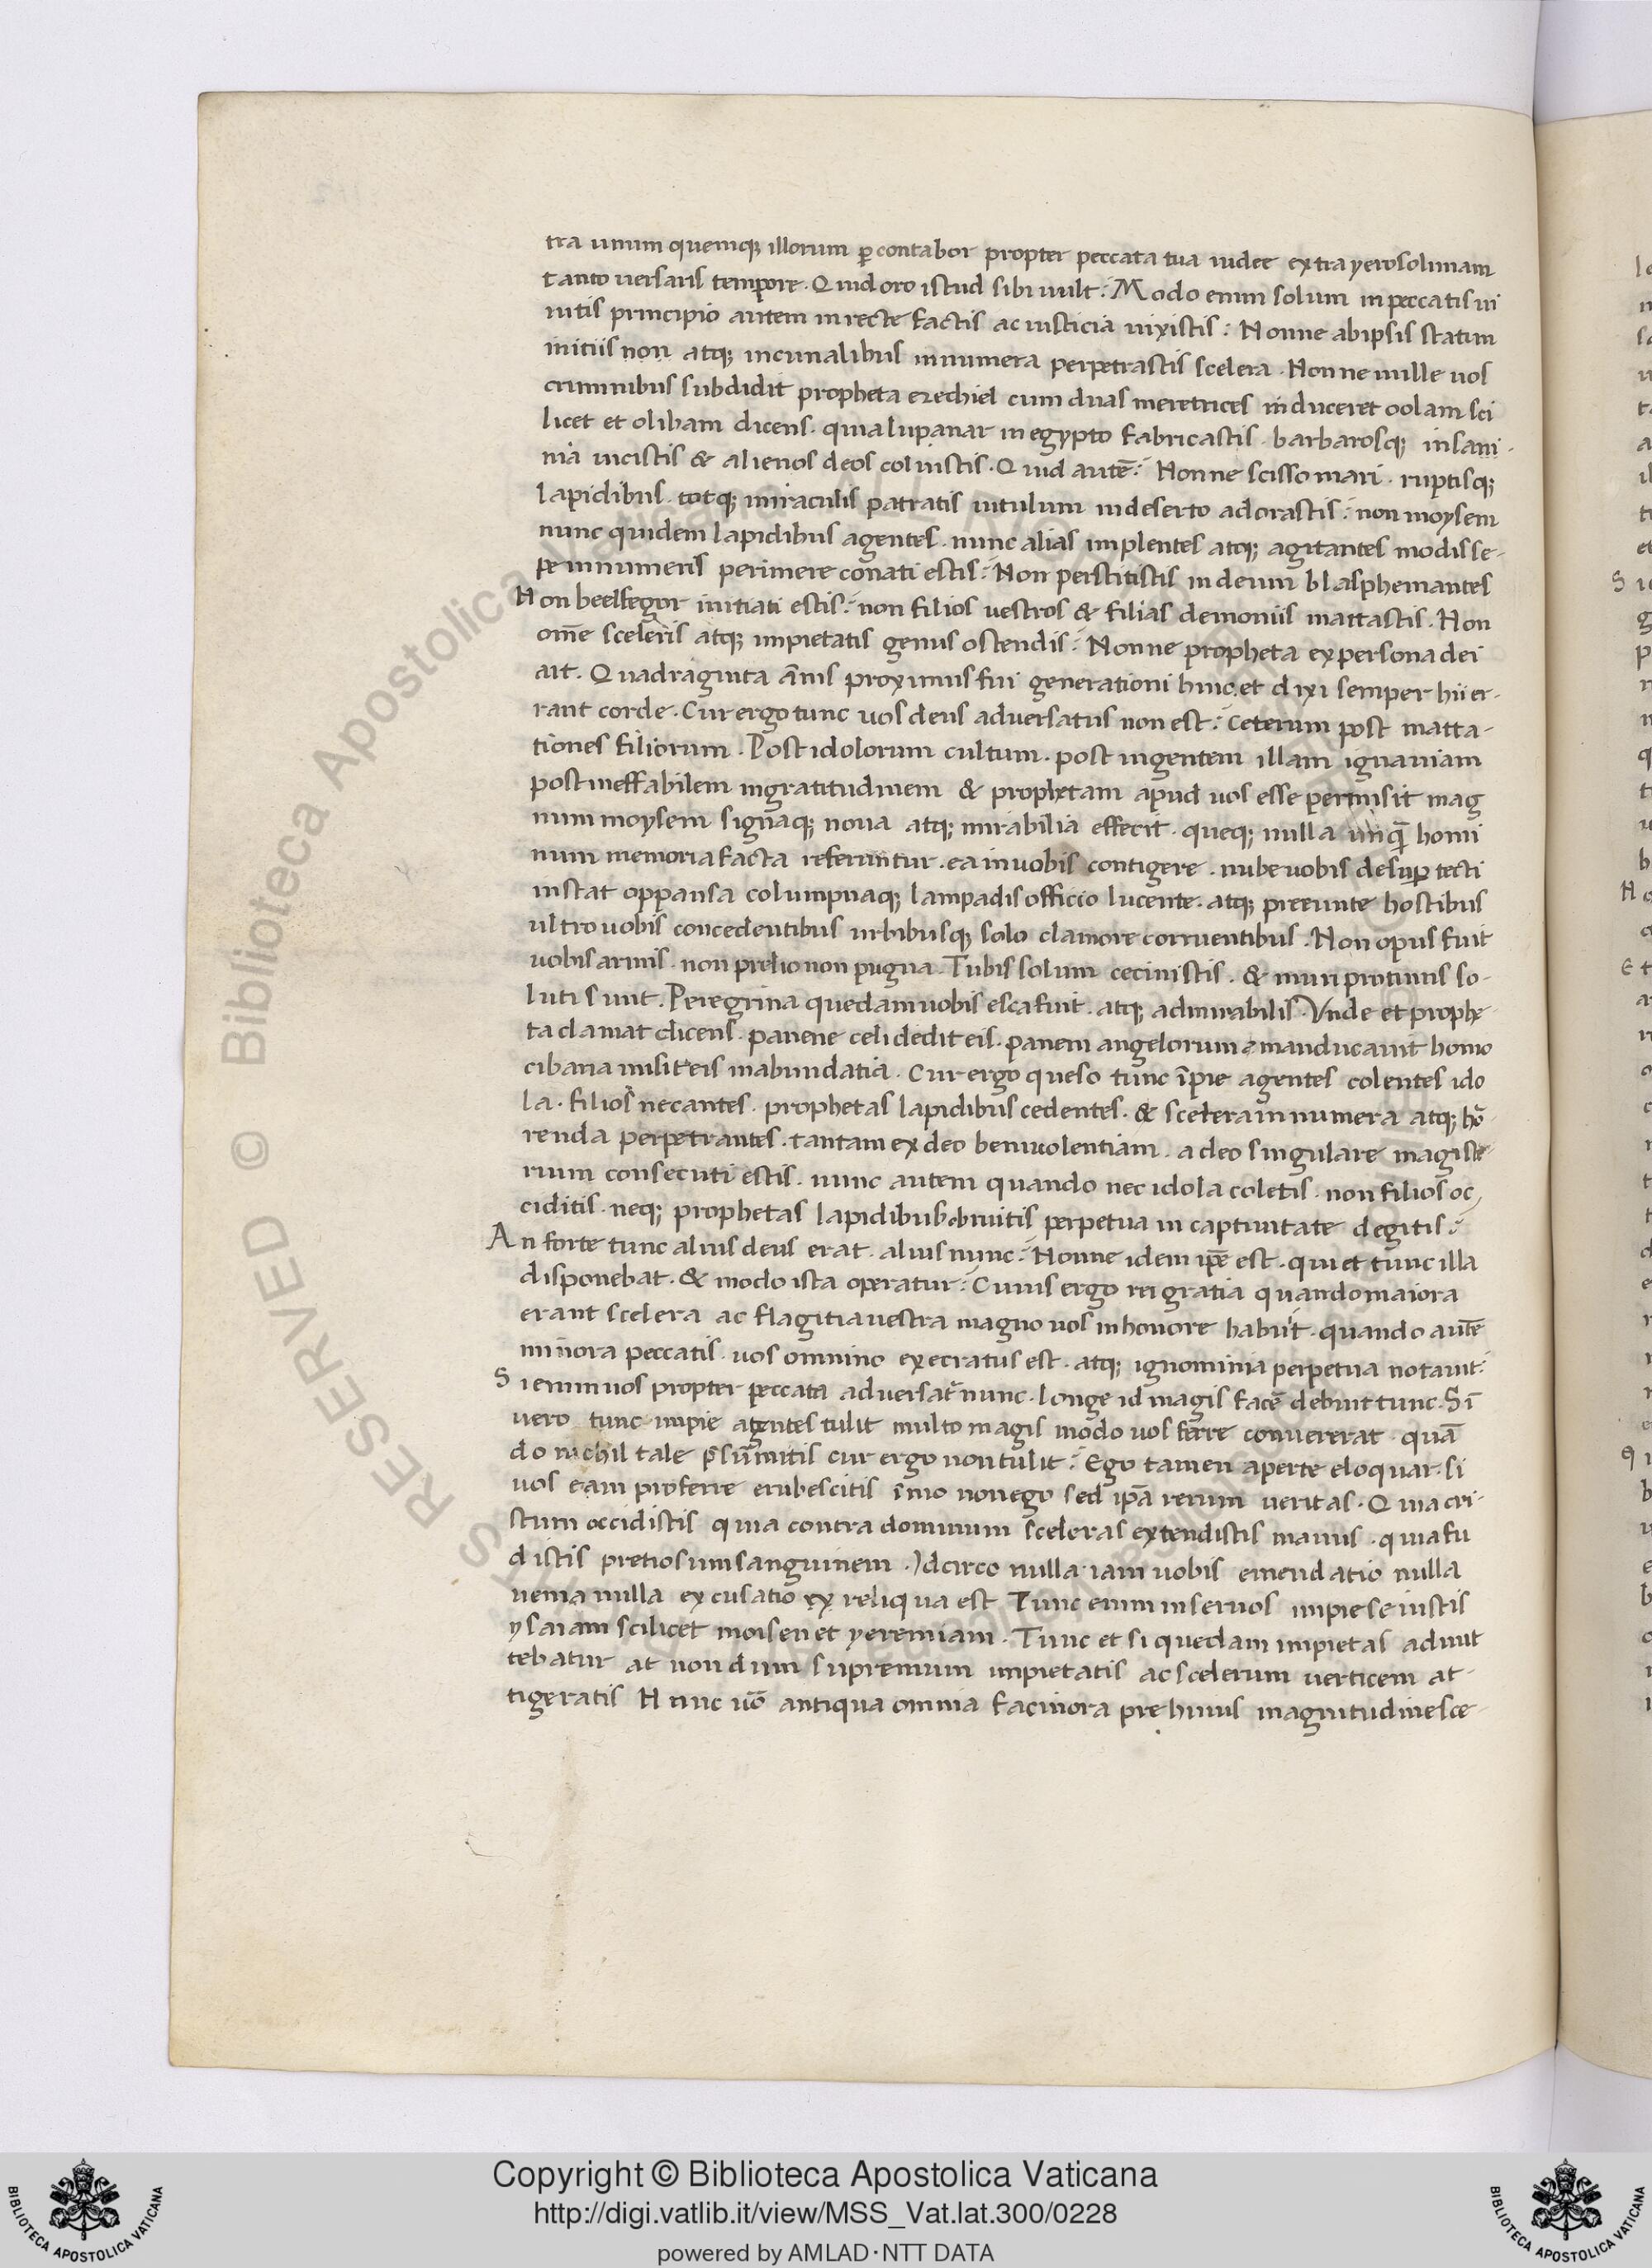 tra unum quemq; illorum p̱contabor propter peccata tua iudee extra yerosolimam
tanto uersaris tempore. Quid oro istud sibi uult? Modo enim solum in peccatis ui
uitis principio autem in recte factis ac iusticia uixistis? Nonne ab ipsis statim
initiis non atq; incunalibus innumera perpetrastis scelera. Nonne mille uos
criminibus subdidit propheta ezechiel cum duas meretrices induceret oolam sci
licet et olibam dicens. quia lupanar in egypto fabricastis. barbarosq; insani-
nia uicistis & alienos deos coluistis. Quid autē? Nonne scisso mari. ruptisq;
lapidibus. totq; miraculis patratis uitulum in deserto adorastis? non moysem
nunc quidem lapidibus agentes. nunc alias implentes atq; agitantes modis se-
pe innumeris perimere conati estis? Non perstitistis in deum blasphemantes
Non beelfegor initiati estis? non filios uestros & filias demoniis mattastis. Non
om̄e sceleris atq; impietatis genus ostendis? Nonne propheta ex persona dei
ait. Quadraginta ānis proximus fui generationi huic. et dixi semper hii er-
rant corde. Cur ergo tunc uos deus aduersatus non est? Ceterum post matta-
tiones filiorum. Post idolorum cultum. post ingentem illam ignauiam
post ineffabilem ingratitudinem & prophetam apud uos esse permisit mag
num moysem signaq; noua atq; mirabilia effecit. queq; nulla unq̄ homi
num memoria facta referuntur. ea in uobis contigere. nube uobis desup̱ tecti
instat oppansa columpnaq; lampadis officio lucente. atq; preeunte hostibus
ultro uobis concedentibus urbibusq; solo clamore corruentibus. Non opus fuit
uobis armis. non prelio non pugna. Tubis solum cecinistis. & muri protinus so-
luti sunt. Peregrina quedam uobis esca fuit. atq; admirabilis. Vnde et prophe-
ta clamat dicens. panene celi dedit eis. panem angelorum manducauit homo
cibaria misit eis in abundatia. Cur ergo queso tunc īpie agentes colentes ido
la. filios necantes. prophetas lapidibus cedentes. & scelera innumera atq; hō
renda perpetrantes. tantam ex deo beniuolentiam. a deo singulare magiste-
rium consecuti estis. nunc autem quando nec idola coletis. non filios oc
ciditis. neq; prophetas lapidibus obruitis perpetua in captiuitate degitis?
An forte tunc alius deus erat. alius nunc? Nonne idem ip̄e est. qui et tunc illa
disponebat. & modo ista operatur? Cuius ergo rei gratia quando maiora
erant scelera ac flagitia uestra magno uos in honore habuit. quando autē
minora peccatis. uos omnino execratus est. atq; ignominia perpetua notauit?
Si enim uos propter peccata aduersat̄ nunc. longe id magis facē debuit tunc. Si
uero tunc impie agentes tulit multo magis modo uos ferre conuererat. quā
do nichil tale p̄sūmitis cur ergo non tulit? Ego tamen aperte eloquar. si
uos eam proferre erubescitis īmo non ego sed ip̄a rerum ueritas. Quia cri-
stum occidistis quia contra dominum sceleras extendistis manus. quia fu
distis pretiosum sanguinem. Idcirco nulla iam uobis emendatio nulla
uenia nulla excusatio reliqua est Tunc enim in seruos impie seiustis
ysaiam scilicet moisen et yeremiam. Tunc et si quedam impietas admit
tebatur at nondum supremum impietatis ac scelerum uerticem at-
tigeratis Nunc uō antiqua omnia facinora pre huius magnitudine sce-
Copyright © Biblioteca Apostolica Vaticana
http://digi.vatlib.it/view/MSS_Vat.lat.300/0228
powered by AMLAD·NTT DATA